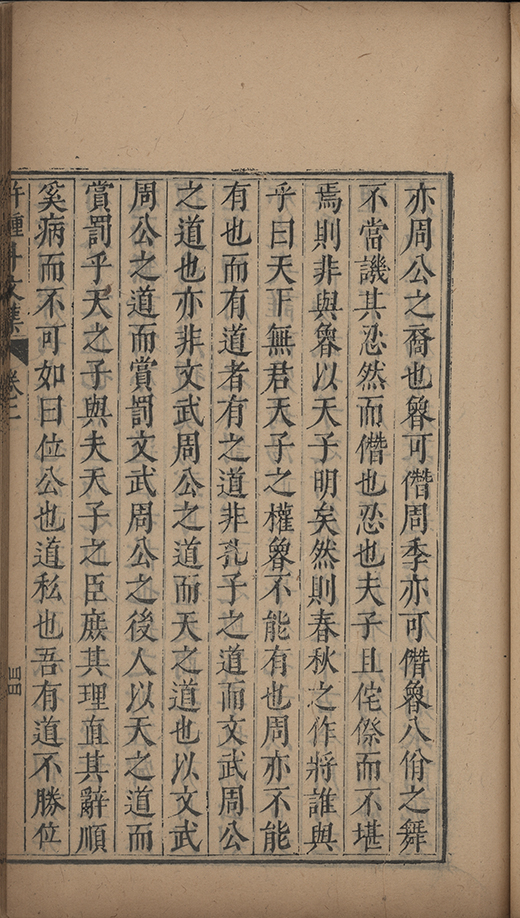 亦周公之裔也魯可僭周季亦可僭魯八佾之舞
不當譏其忍然而僭也忍也夫子且侘傺而不堪
焉則非與魯以天子明矣然則春秋之作將誰與
乎曰天下無君天子之權魯不能有也周亦不能
有也而有道者有之道非孔子之道而文武周公
之道也亦非文武周公之道而天之道也以文武
周公之道而賞罰文武周公之後人以天之道而
賞罰乎天之子與夫天子之臣庶其理直其辭順
奚病而不可如曰位公也道私也吾有道不勝位
許鍾斗文集 卷二 四